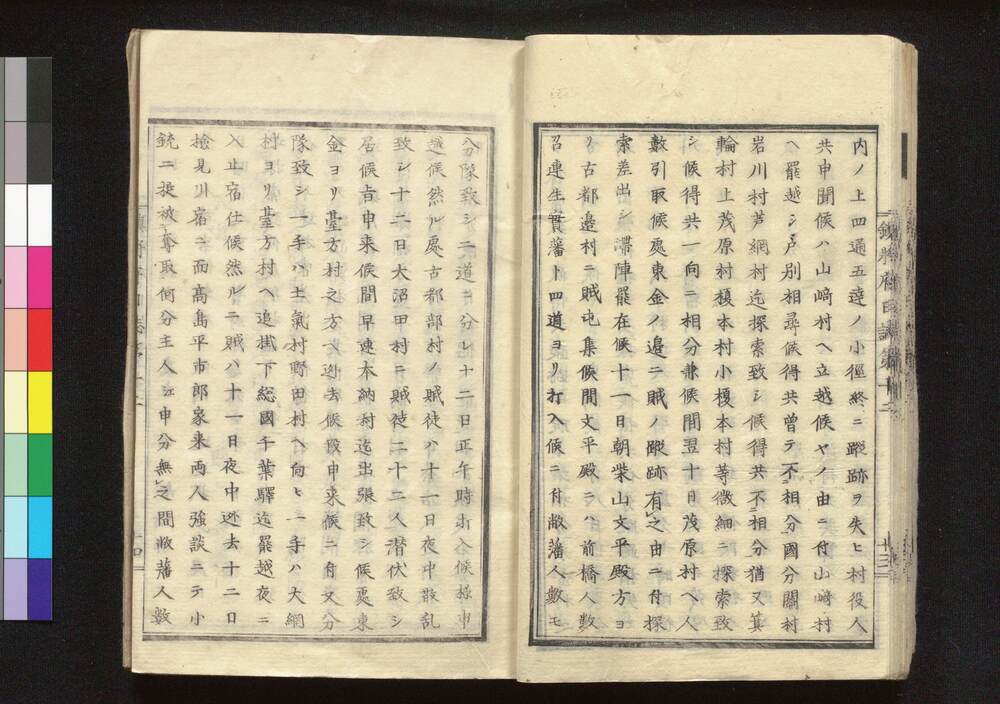 内ノ上四通五達ノ小徑終ニ蹤跡ヲ失ヒ村役人
共申聞候ハ山﨑村ヘ立越候ヤノ由ニ付山﨑村
ヘ罷越シ戸別相尋候得共曾テ不相分國分關村
岩川村芦網村迄探索致シ候得共不相分猶又箕
輪村上茂原村榎本村小榎本村等微細ニ探索致
シ候得共一向ニ相分兼候間翌十日茂原村ヘ人
數引取候處東金ノ邉ニ賊ノ蹤跡有之由ニ付探
索差出シ滯陣罷在候十一日朝柴山文平殿方ヨ
リ古都邉村ニ賊屯集候間文平殿ニハ前橋人數
召連生實藩ト四道ヨリ打入候ニ付敝藩人數モ
鎭將府日誌第十二
十三
分隊致シ二道ニ分レ十二日正午時打入候樣申
越候然ル處古都部村ノ賊徒ハ十一日夜中散乱
致シ十二日大沼田村ニ賊徒二十二人潜伏致シ
居候㫖申来候間早速本納村迄出張致シ候處東
金ヨリ臺方村之方ヘ迯去候段申来候ニ付又分
隊致シ一手ハ土氣村野田村ヘ向ヒ一手ハ大網
村ヨリ臺方村ヘ追掛下総國千葉驛迄罷越夜ニ
入止宿仕候然ルニ賊ハ十一日夜中迯去十二日
撿見川宿ニ而髙島平市郎家来両人強談ニテ小
銃二挺被奪取何分主人江申分無之間敝藩人數
十四